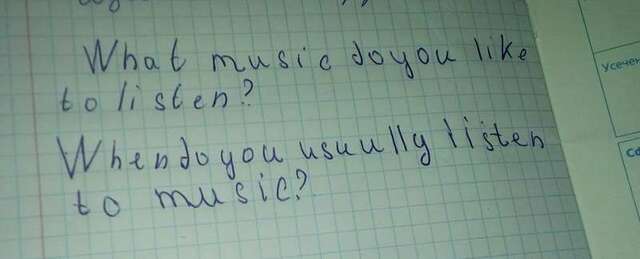 What music do you like
to listen?
When do you usuully listen
to music?
Усечен